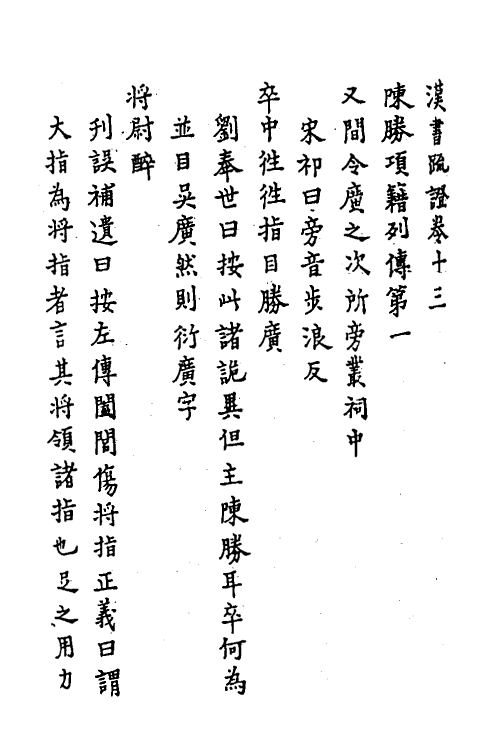 漢書疏證卷十三
陳勝項籍列傳第一
又間令廣之次所旁叢祠中
宋祁曰旁音步浪反
卒中徃徃指目勝廣
劉奉世曰按此諸詭異但主陳勝耳卒何為
並目吴廣然則衍廣字
将尉醉
刋誤補遺曰按左傳闔閭傷将指正義曰謂
大指為将指者言其将領諸指也足之用力